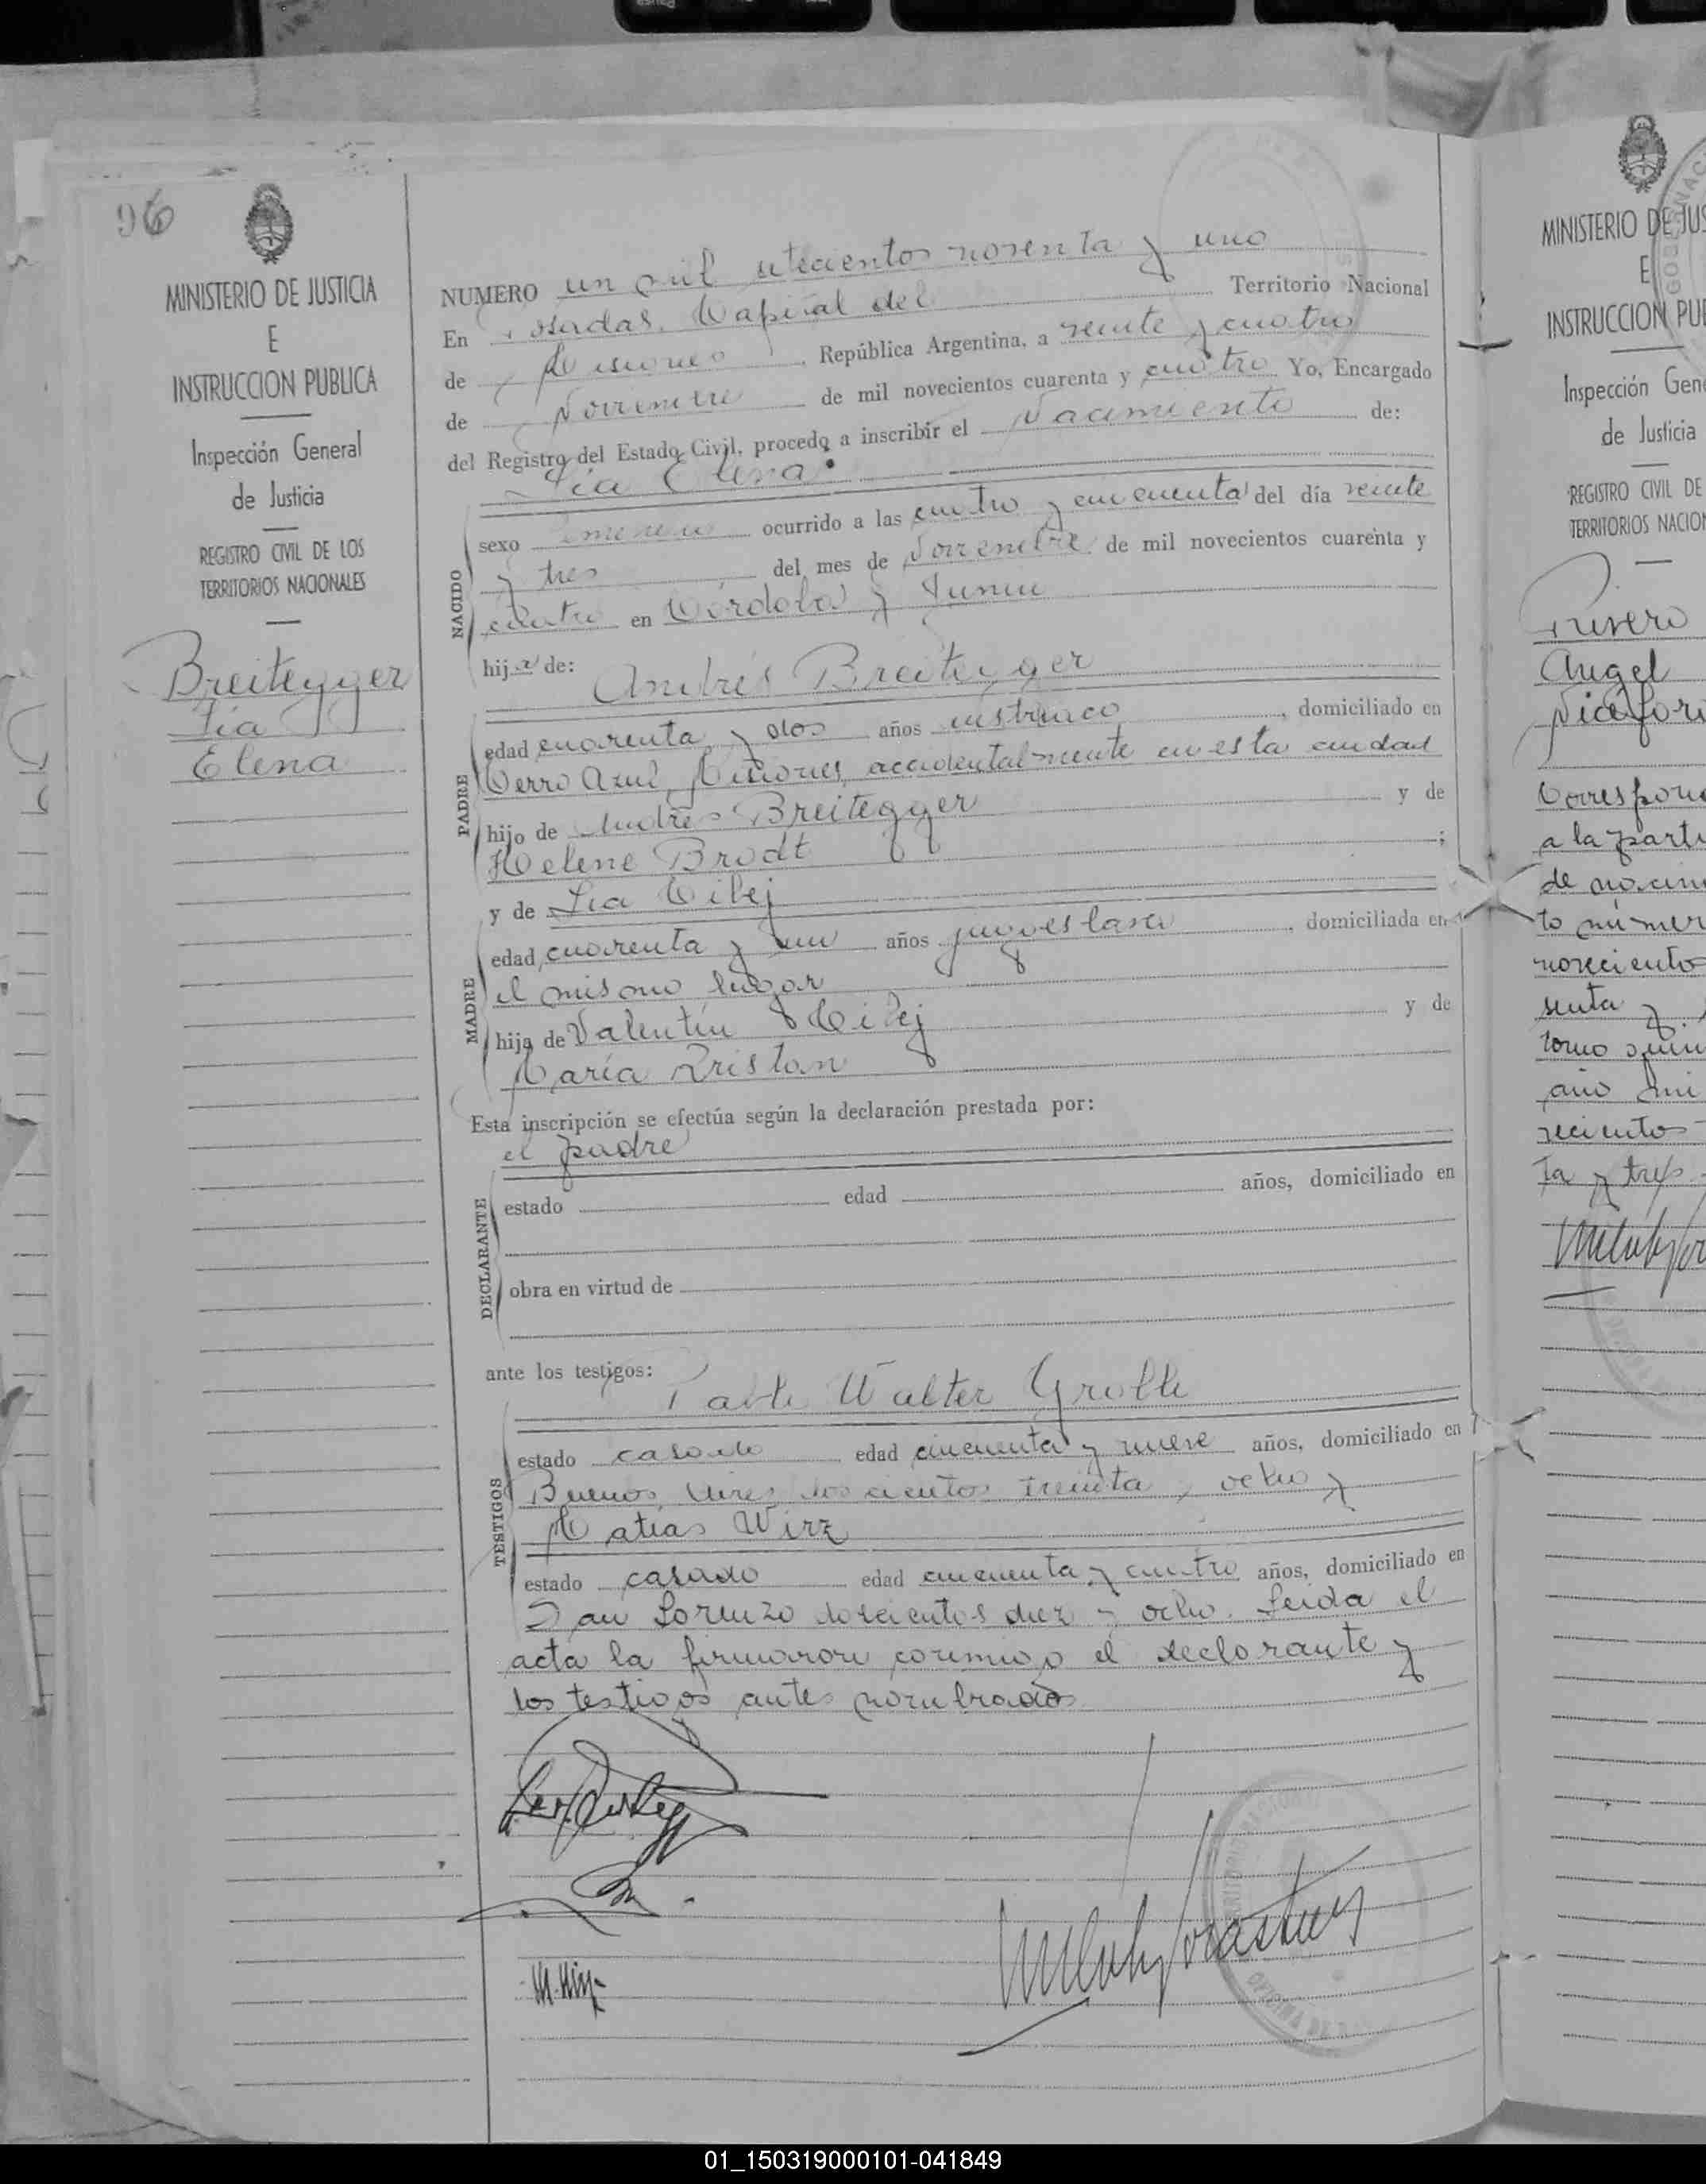 96
MINISTERIO DE JUSTICIA
E
INSTRUCCION PUBLICA
Inspección General
de Justicia
REGISTRO CIVIL DE LOS
TERRITORIOS NACIONALES
Breitegger
Lía
Elena
NUMERO un mil setecientos noventa y uno
En Posadas, Capital del Territorio Nacional
de Misiones, República Argentina, a veinte y cuatro
de Noviembre de mil novecientos cuarenta y cuatro Yo, Encargado
del Registro del Estado Civil, procedo a inscribir el Nacimiento de:
Lía Elena.
NACIDO
sexo femenino ocurrido a las cuatro y cincuenta del día veinte
y tres del mes de Noviembre de mil novecientos cuarenta y
cuatro en Córdoba y Junin
hija de: Andrés Breitegger
PADRE
edad cuarenta y dos años austriaco, domiciliado en
Cerro Azul, Misiones, accidentalmente en esta ciudad
hijo de Andrés Breitegger y de
Helene Brodt;
y de Lia Cibej
MADRE
edad cuarenta y un años yugoeslava, domiciliada en
el mismo lugar
hija de Valentín Cibej y de
María Kristan
Esta inscripción se efectúa según la declaración prestada por:
el padre
DECLARANTE
estado edad años, domiciliado en
obra en virtud de
ante los testigos:
Walter Grothe
TESTIGOS
estado casado edad cincuenta y nueve años, domiciliado en
Buenos Aires doscientos treinta y ocho y
Matías Wirz
estado casado edad cincuenta y cuatro años, domiciliado en
San Lorenzo doscientos diez y ocho. Leída el
acta la firmaron conmigo el declarante y
los testigos antes nombrados
M. Wirz
OFICINA
MINISTERIO DE JUS
E
INSTRUCCION PU
Inspección Gen
de Justicia
REGISTRO CIVIL DE
TERRITORIOS NACIO
Rivero
Angel
Nicefor
Correspon
a la parti
de nacim
to númer
noveciento
senta y
tomo
año mil
vecientos
ta y tres
01_150319000101-041849